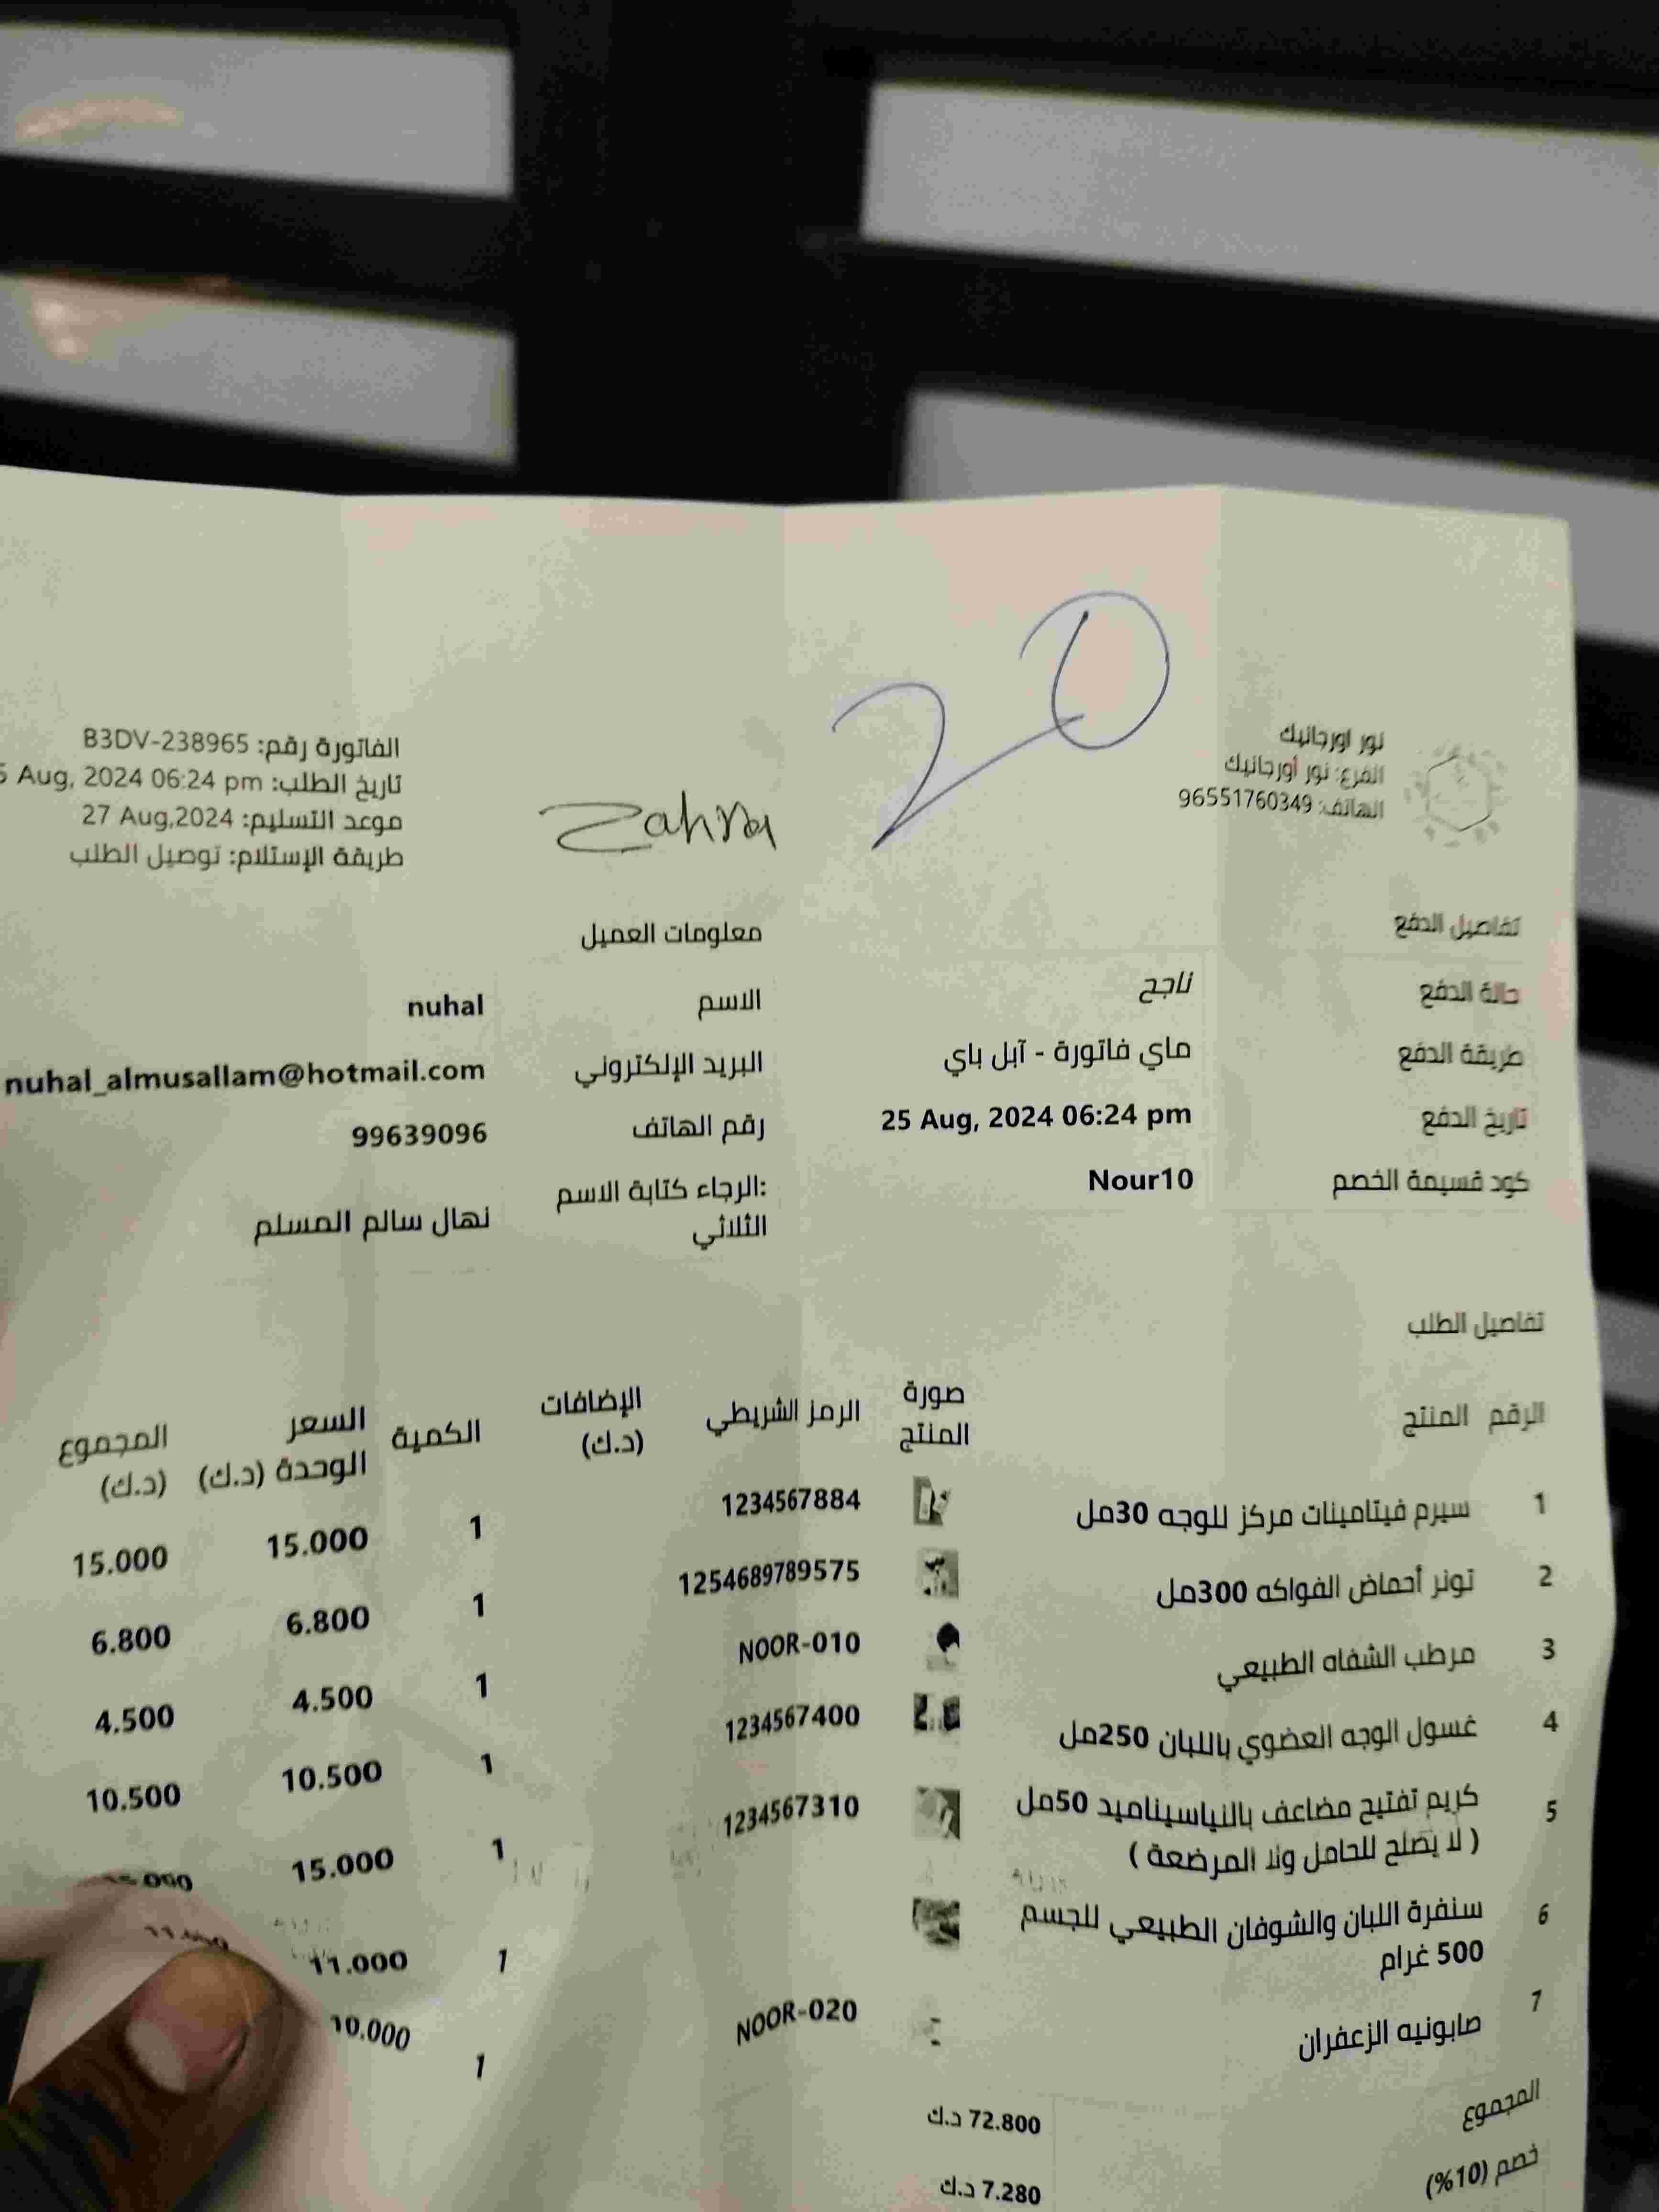 20
Zahra
نور اورجانيك
الفرع: نور أورجانيك
الهاتف: 96551760349
الفاتورة رقم: B3DV-238965
تاريخ الطلب: 5 Aug, 2024 06:24 pm
موعد التسليم: 27 Aug,2024
طريقة الإستلام: توصيل الطلب
تفاصيل الدفع
حالة الدفع ناجح
طريقة الدفع ماي فاتورة - آبل باي
تاريخ الدفع 25 Aug, 2024 06:24 pm
كود قسيمة الخصم Nour10
معلومات العميل
الاسم nuhal
البريد الإلكتروني nuhal_almusallam@hotmail.com
رقم الهاتف 99639096
:الرجاء كتابة الاسم
الثلاثي نهال سالم المسلم
تفاصيل الطلب
الرقم المنتج صورة المنتج الرمز الشريطي الإضافات (د.ك) الكمية السعر الوحدة (د.ك) المجموع (د.ك)
1 سيرم فيتامينات مركز للوجه 30مل 1234567884 1 15.000 15.000
2 تونر أحماض الفواكه 300مل 1254689789575 1 6.800 6.800
3 مرطب الشفاه الطبيعي NOOR-010 1 4.500 4.500
4 غسول الوجه العضوي باللبان 250مل 1234567400 1 10.500 10.500
5 كريم تفتيح مضاعف بالنياسيناميد 50مل 1234567310 1 15.000
( لا يصلح للحامل ولا المرضعة )
6 سنفرة اللبان والشوفان الطبيعي للجسم 1 11.000
500 غرام
7 صابونيه الزعفران NOOR-020 1 10.000
المجموع 72.800 د.ك
خصم (10%) 7.280 د.ك